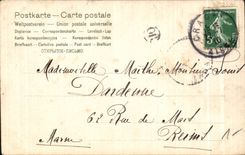 Postkarte - Carte postale
Weltpostverein - Union postale universelle
Dopisnice - Correspondenzkarte - Levelező-Lap
Karta korespondencyjna - Korespondenční lístek
Briefkaart - Cartolina postale - Post card - Brefkort
ОТКРЫТОЕ ПИСЬМО
Mademoiselle
Dardenne
62 Rue de Mars
Reims
Marne